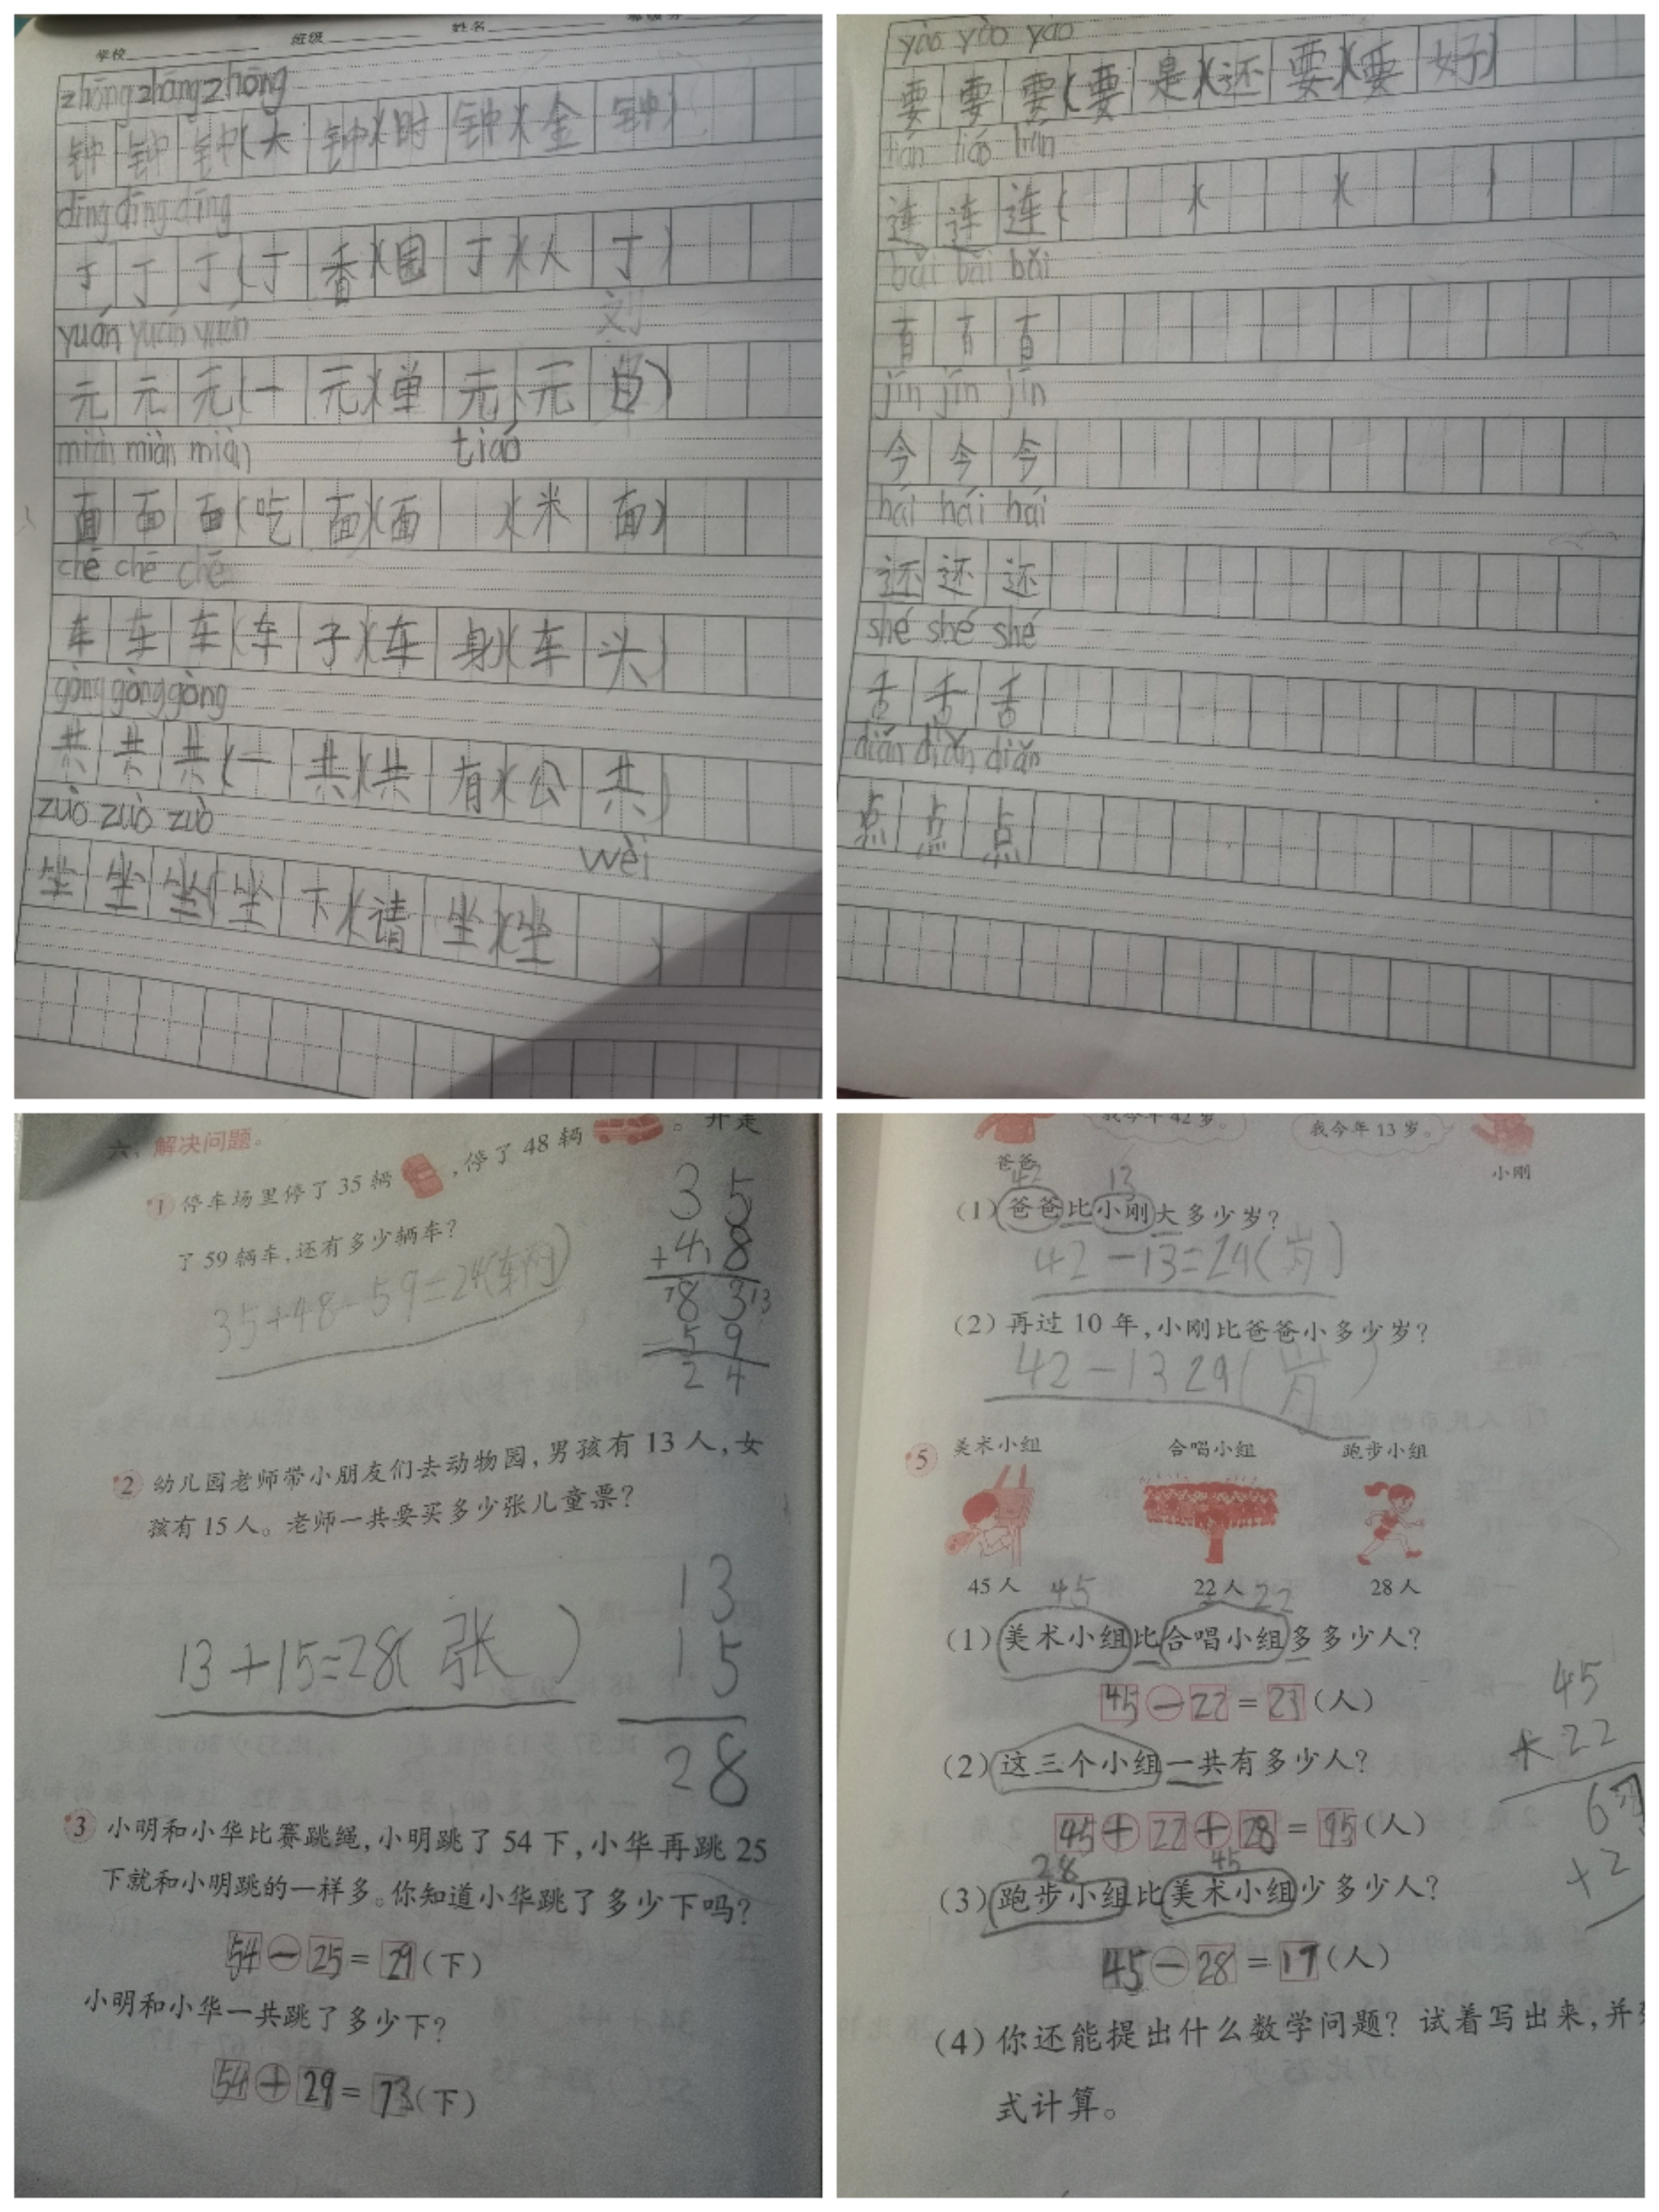 学校 班级 姓名
zhōng zhōng zhōng
钟 钟 钟(大 钟)(时 钟)(金 钟)
dīng dīng dīng
丁 丁 丁(丁 香)(园 丁)(人 丁)
yuán yuán yuán
元 元 元(一 元)(单 元)(元 旦)
miàn miàn miàn tiáo
面 面 面(吃 面)(面 )(米 面)
chē chē chē
车 车 车(车 子)(车 身)(车 头)
gòng gòng gòng
共 共 共(一 共)(共 有)(公 共)
zuò zuò zuò
wèi
坐 坐 坐(坐 下)(请 坐)(坐 )
yào yào yào
要 要 要(要 是)(还 要)(要 好)
连 连 连( )( )( )
bǎi bǎi bǎi
百 百 百
jīn jīn jīn
今 今 今
hái hái hái
还 还 还
shé shé shé
舌 舌 舌
diǎn diǎn diǎn
点 点 点
六、解决问题。
1 停车场里停了 35 辆 ,停了 48 辆 。开走
了 59 辆车,还有多少辆车?
35+48-59=24(辆)
35
+48
83 13
-59
24
2 幼儿园老师带小朋友们去动物园,男孩有 13 人,女
孩有 15 人。老师一共要买多少张儿童票?
13+15=28(张)
13
15
28
3 小明和小华比赛跳绳,小明跳了 54 下,小华再跳 25
下就和小明跳的一样多。你知道小华跳了多少下吗?
54-25=29(下)
小明和小华一共跳了多少下?
54+29=73(下)
我今年 42 岁。 我今年 13 岁。
爸爸 小刚
42 13
(1) 爸爸比小刚大多少岁?
42-13=29(岁)
(2) 再过 10 年,小刚比爸爸小多少岁?
42-13 29(岁)
5 美术小组 合唱小组 跑步小组
45 人 45 22 人 22 28 人
(1) 美术小组比合唱小组多多少人?
45-22=23(人)
45
+22
(2) 这三个小组一共有多少人?
45+22+28=95(人)
28 45
(3) 跑步小组比美术小组少多少人?
45-28=17(人)
(4) 你还能提出什么数学问题? 试着写出来,并
式计算。